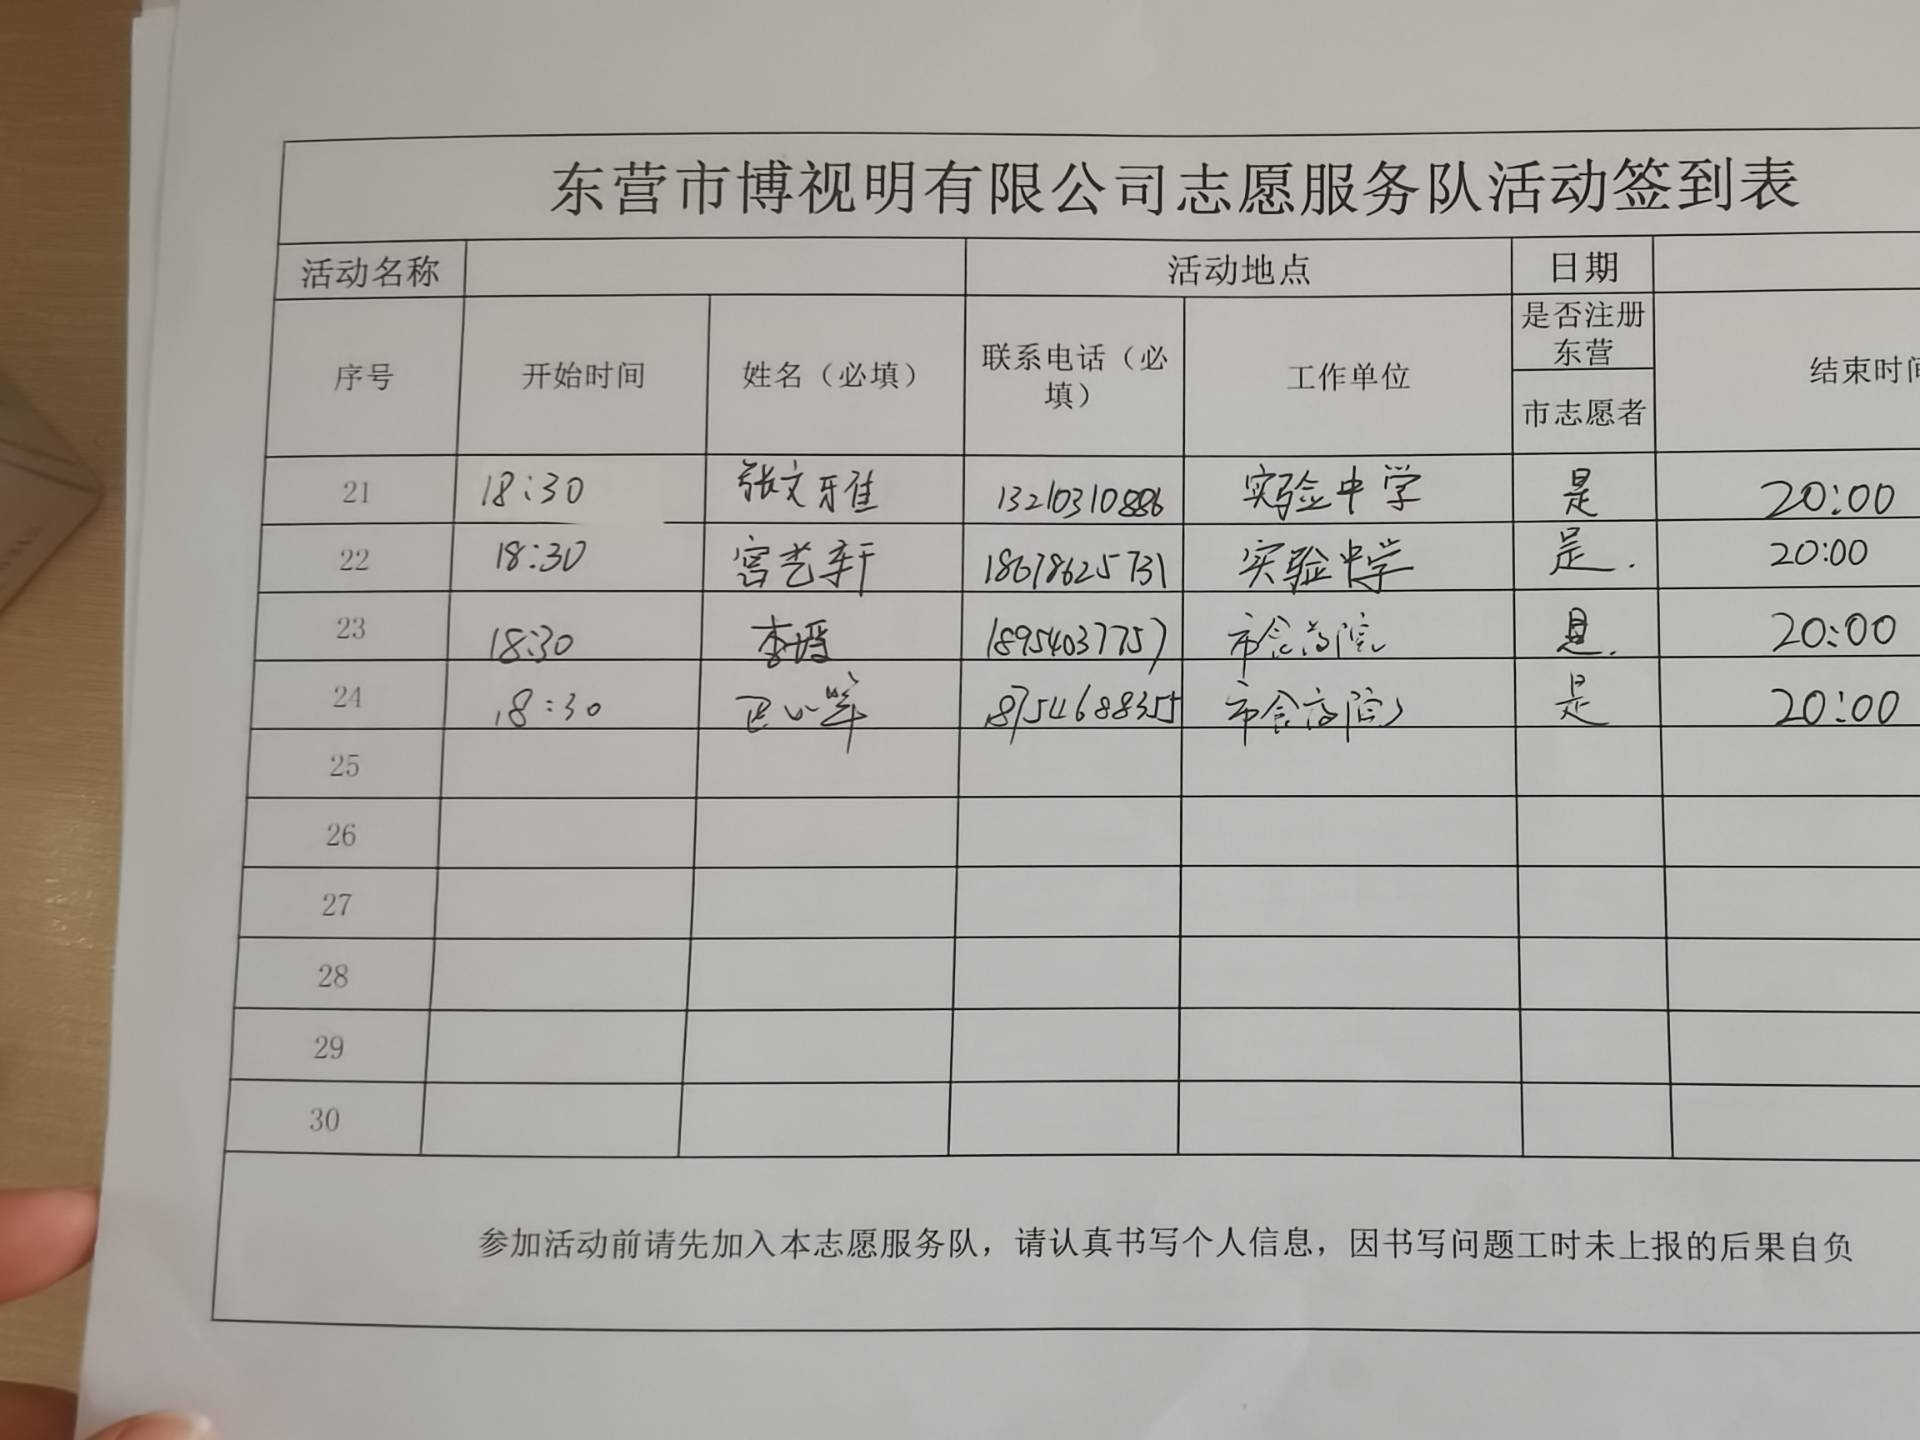 东营市博视明有限公司志愿服务队活动签到表
活动名称 活动地点 日期
序号 开始时间 姓名（必填） 联系电话（必填） 工作单位 是否注册东营市志愿者 结束时间
21 18:30 张文雅 13210310886 实验中学 是 20:00
22 18:30 宫艺轩 18678625731 实验中学 是. 20:00
23 18:30 李 18954037757 市 是. 20:00
24 18:30 18754688355 市 是 20:00
25
26
27
28
29
30
参加活动前请先加入本志愿服务队，请认真书写个人信息，因书写问题工时未上报的后果自负